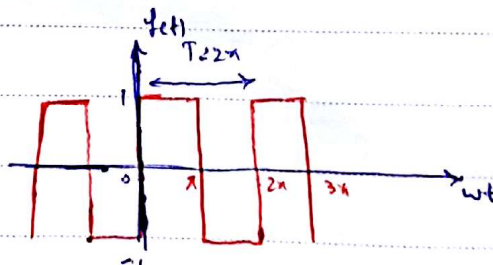 f(t)
T=2π
1
0 π 2π 3π
wt
-1